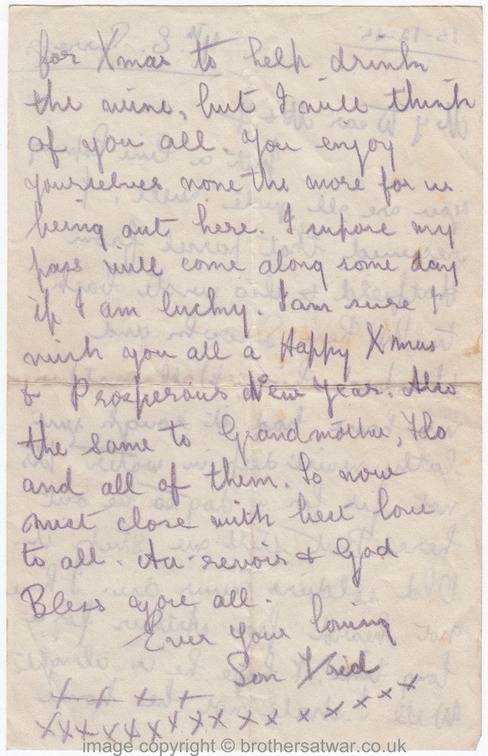 for Xmas to help drink
the wine, but I will think
of you all. You enjoy
yourselves none the more for us
being out here. I supose my
pass will come along some day
if I am lucky. I am sure I
wish you all a Happy Xmas
& Prosperous New Year. Also
the same to Grandmother,
and all of them. So now
must close with best love
to all. Au-revoir & God
Bless you all.
Ever your loving
Son
x x x x
x x x x x x x x x x x x x x x
image copyright © brothersatwar.co.uk